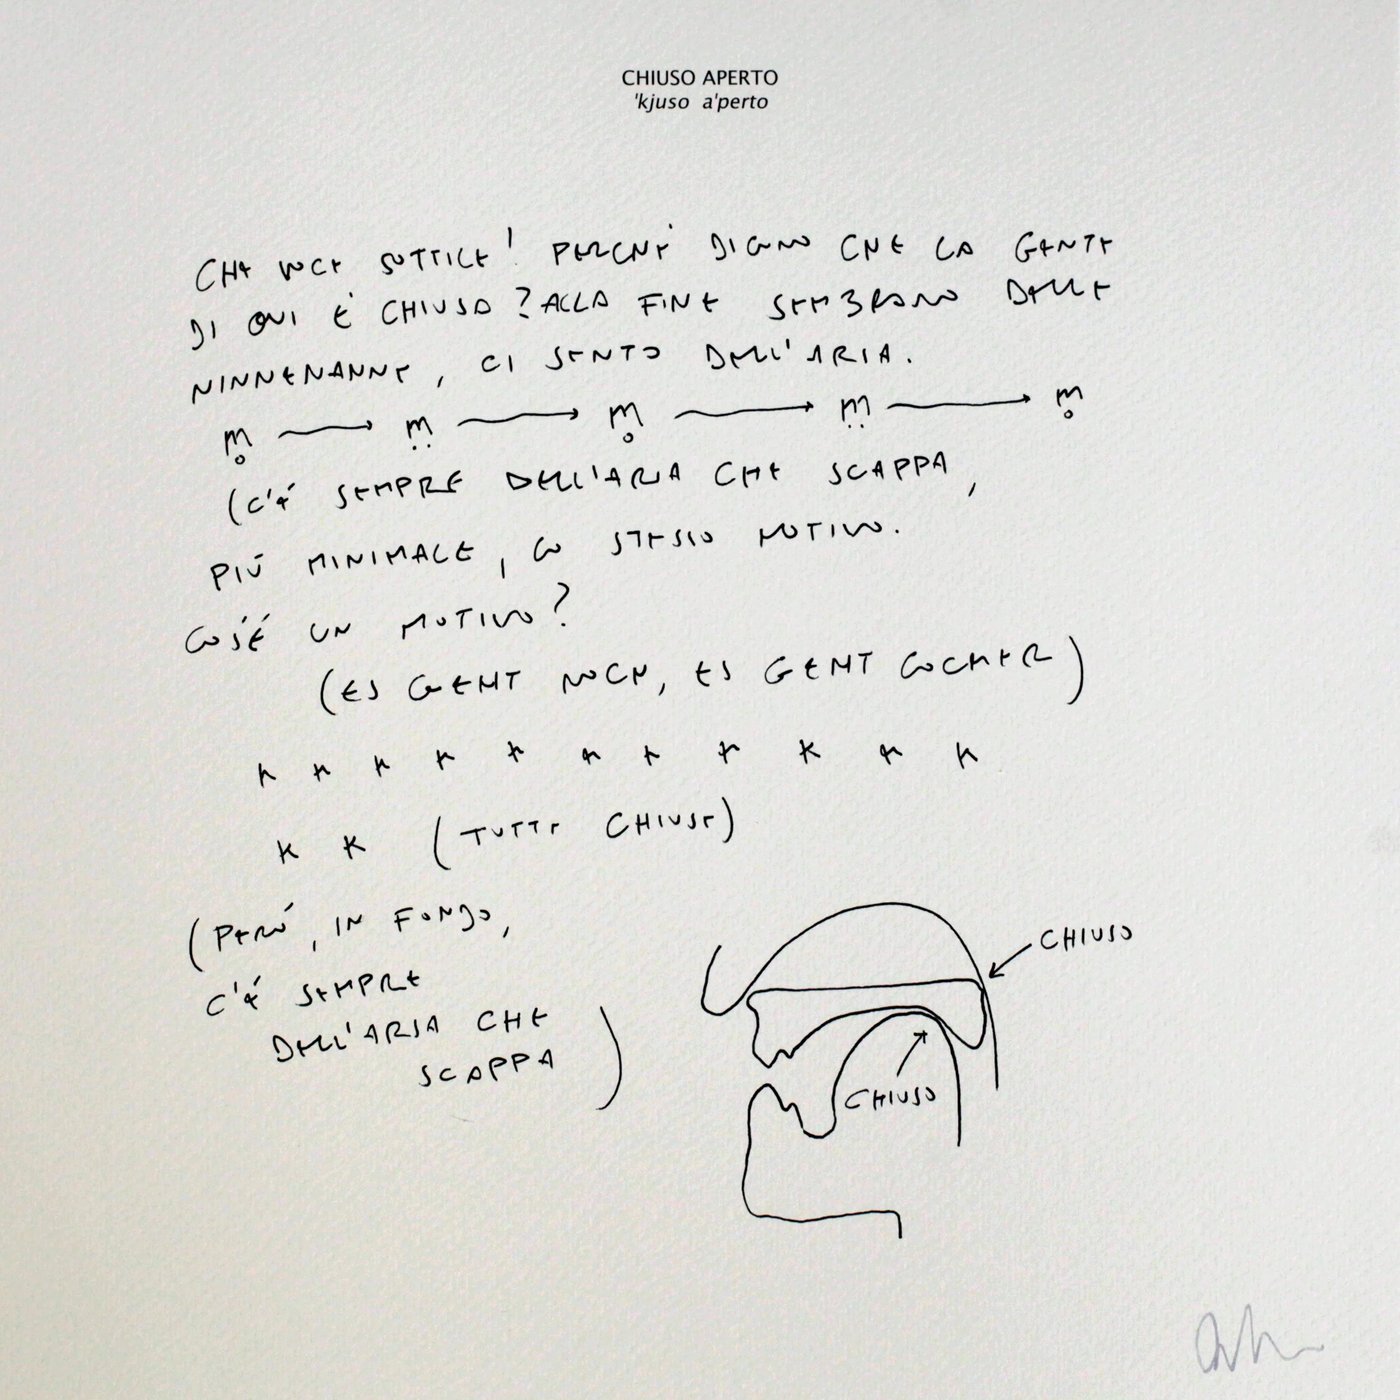 CHIUSO APERTO
'kjuso a'perto
CHE VOCE SOTTILE! PERCHÉ DICONO CHE LA GENTE
DI QUI É CHIUSA? ALLA FINE SEMBRANO DELLE
NINNENANNE, CI SENTO DELL'ARIA.
m̥ → m̤ → m̥ → m̤ → m̥
(C'É SEMPRE DELL'ARIA CHE SCAPPA,
PIÚ MINIMALE, LO STESSO MOTIVO.
COS'É UN MOTIVO?
(ES GEHT NOCH, ES GEHT LOCKER)
K K K K K K K K K K K
K K (TUTTE CHIUSE)
(PERÓ, IN FONDO,
C'É SEMPRE
DELL'ARIA CHE
SCAPPA)
CHIUSO
CHIUSO